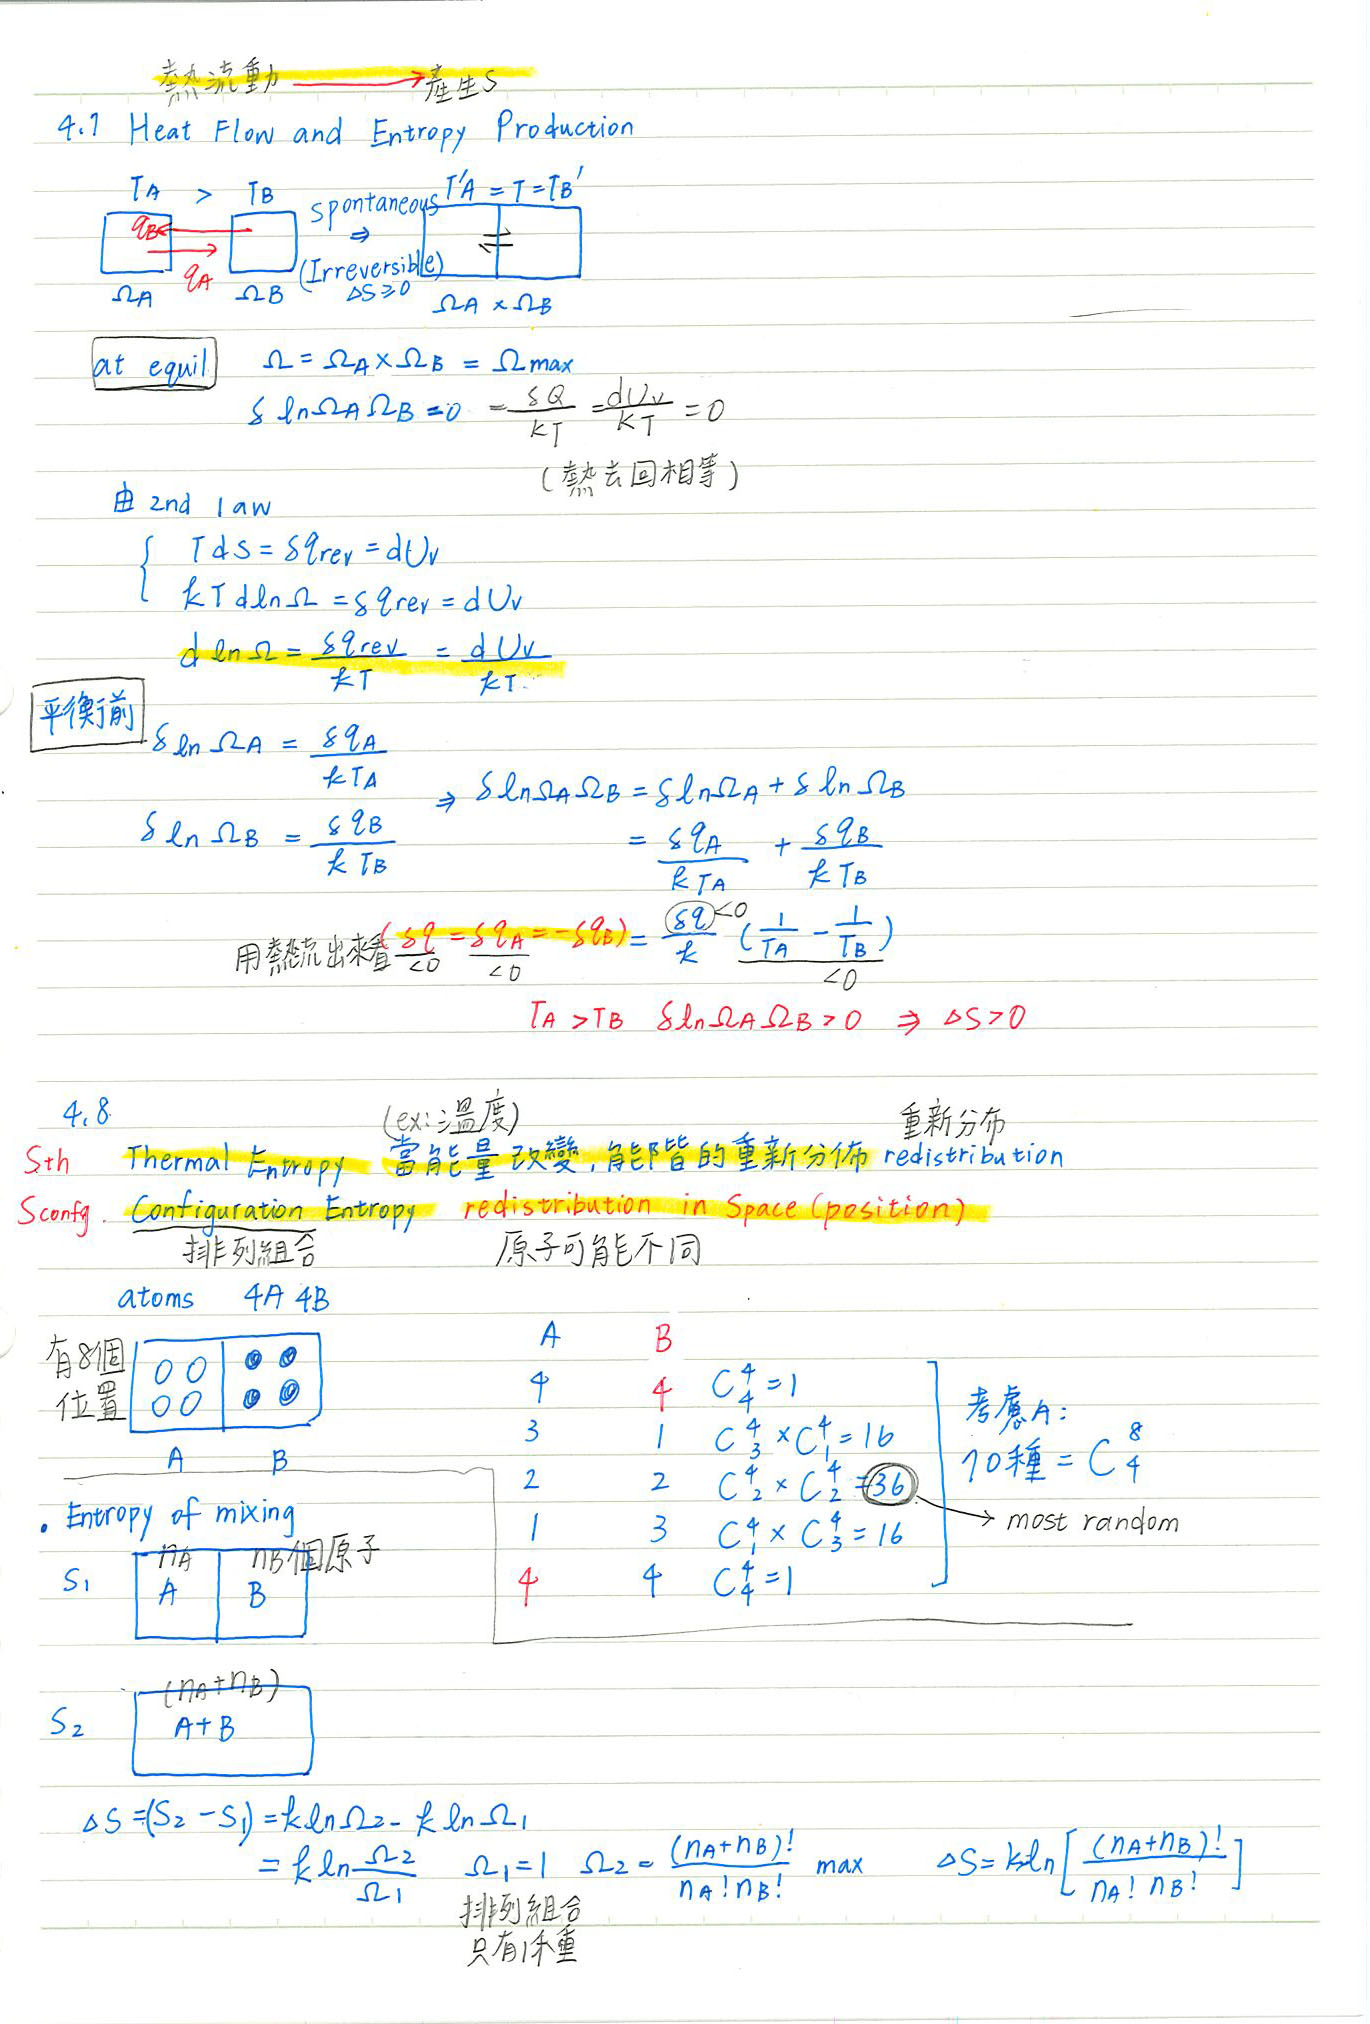 熱流動 → 產生S
4.7 Heat Flow and Entropy Production
TA > TB Spontaneous T'A = T = TB'
qB ⇒ ⇌
qA (Irreversible)
ΩA ΩB ΔS≥0 ΩA × ΩB
at equil Ω = ΩA × ΩB = Ωmax
δ lnΩAΩB = 0 = δQ/kT = dUv/kT = 0
(熱去回相等)
由 2nd law
{ TdS = δqrev = dUv
kT dlnΩ = δqrev = dUv
d lnΩ = δqrev/kT = dUv/kT
平衡前
δ ln ΩA = δqA/kTA
⇒ δ lnΩAΩB = δ lnΩA + δ lnΩB
δ ln ΩB = δqB/kTB
= δqA/kTA + δqB/kTB
用熱流出來看 (δq = δqA = -δqB) = δq/k (1/TA - 1/TB)
<0 <0 <0 <0
TA > TB δ lnΩAΩB > 0 ⇒ ΔS>0
4.8 (ex:溫度) 重新分布
Sth Thermal Entropy 當能量改變,能階的重新分佈 redistribution
Sconfg. Configuration Entropy redistribution in Space (position)
排列組合 原子可能不同
atoms 4A 4B
有8個
位置
A B
A B
4 4 C⁴₄ = 1
3 1 C⁴₃ × C⁴₁ = 16
2 2 C⁴₂ × C⁴₂ = 36
1 3 C⁴₁ × C⁴₃ = 16
4 4 C⁴₄ = 1
考慮A:
70種 = C⁸₄
most random
• Entropy of mixing
nA nB個原子
S1 A B
(nA+nB)
S2 A+B
ΔS = (S2 - S1) = k lnΩ2 - k lnΩ1
= k ln Ω2/Ω1 Ω1 = 1 Ω2 = (nA+nB)!/nA!nB! max ΔS = k ln[(nA+nB)!/nA! nB!]
排列組合
只有1種